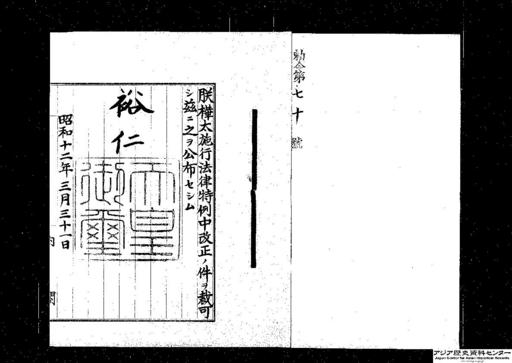 勅令第七十號
朕樺太施行法律特例中改正ノ件ヲ裁可
シ茲ニ之ヲ公布セシム
裕仁
天皇
御璽
昭和十二年三月三十一日
内閣
アジア歴史資料センター
Japan Center for Asian Historical Records